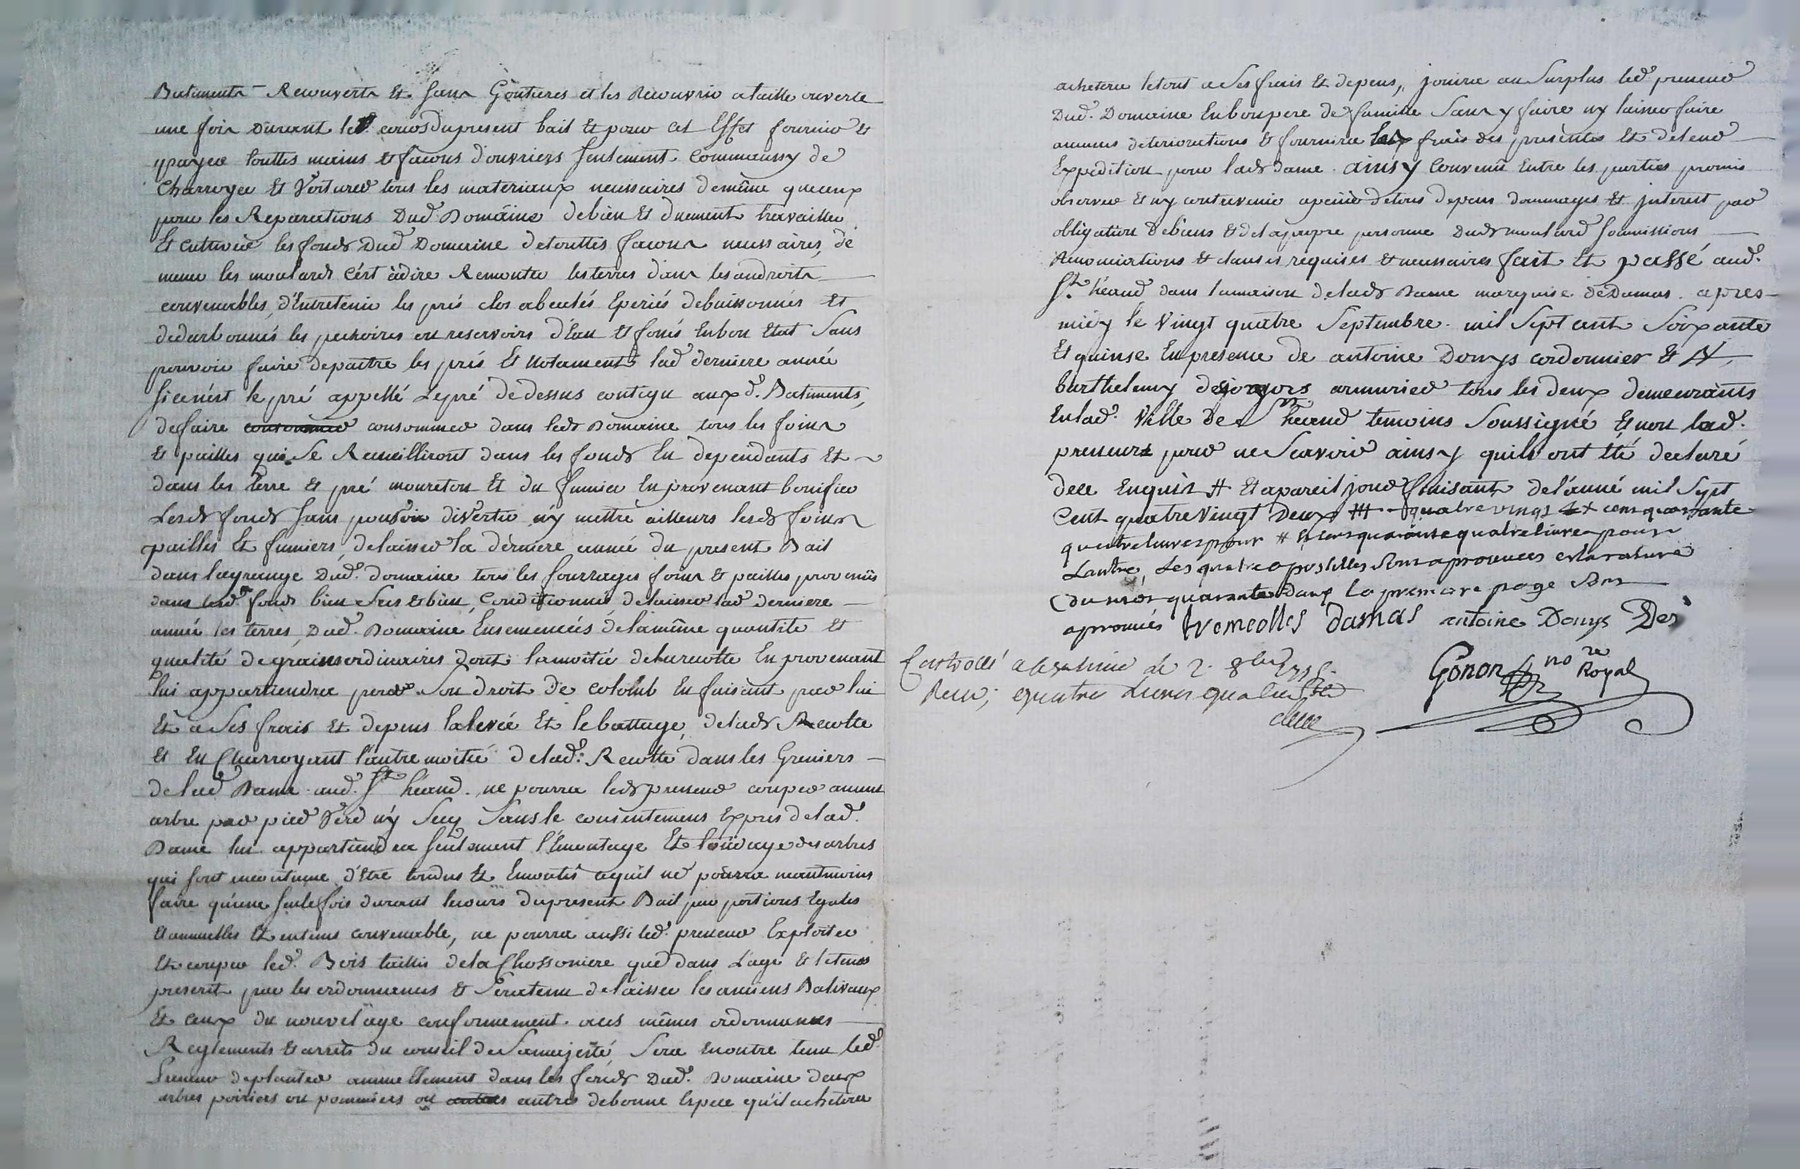 Batiments Recouverts Et sans Goutieres et les Recouvrir a taille ouverte
une fois Durant led. cours du present bail Et pour cet Effet fournir Et
payer touttes mains et facons d'ouvriers seulement comme aussy de
Charroyer Et Voiturer tous les materiaux necessaires de même que ceux
pour les Reparations Dud. Domaine de bien Et duement travailler
Et cultiver les fonds Dud. Domaine de touttes facons necessaires, de
mener les moulards C'est àdire Remonter les terres dans les endroits
convenables, d'Entretenir les prés clos abealés Epériés debuissonnés Et
les pechoires ou reservoirs d'Eau Et fossés En bon Etat Sans
pouvoir faire depaitre les prés Et Notament lad derniere année
si ce n'est le pré appellé Le pré de dessus contigu auxd. Batiments,
de faire consommer dans led Domaine tous les foins
Et pailles qui Se Recueilliront dans les fonds En dependants Et
dans les terre Et pré moureton Et du fumier En provenant bonifier
Lesd fonds sans pouvoir divertir n'y mettre ailleurs lesd foins
pailles Et fumiers, delaisser la derniere année du present Bail
dans la grange Dud. domaine tous les fourrages foins Et pailles provenus
dans lesd. fonds bien Secs et bien Conditionnés delaisser lad derniere
année les terres, Dud. Domaine Ensemencées de la même quantité Et
qualité de grains ordinaires Dont la moitié de la recolte En provenant
lui appartiendra pour Son droit de colomb En faisant par lui
Et a Ses frais Et depens la levée Et le battage, de lad Recolte
Et En Charroyant l'autre moitié de lad. Recolte dans les Greniers
de lad Dame aud. St héand. ne pourra led preneur couper aucuns
arbre par pied Verd n'y Secq Sans le consentement Expres de lad.
Dame lui appartiendra seulement l'Emontage Et des arbres
qui sont accoutumé d'être tondus Et Emontés ce qu'il ne pourra neantmoins
faire qu'une seule fois durant le cours du present Bail par portions Egales
Et annuelles Et en tems convenable, ne pourra aussi led. preneur Exploiter
Et couper led. Bois taillis de la Chossoniere que dans L'age Et le tems
prescrit par les ordonnances Et Sera tenu de laisser les anciens Balivaux
Et ceux du nouvel âge conformement aux mêmes ordonnances
Reglements Et arrêts du conseil de Sa majesté, Sera En outre tenu led.
Preneur de planter annuellement dans les fonds Dud. Domaine deux
arbres poiriers ou pommiers ou autres de bonne Espece qu'il achetera
achetera le tout a Ses frais Et depens, jouira au Surplus led. preneur
Dud. Domaine En bon pere de famille Sans y faire ny laisser faire
aucunes deteriorations Et fournira les frais des presentes Et de leur
Expedition pour lad dame. ainsy Convenu Entre les parties promis
observer Et n'y contrevenir a peine de tous depens dommages Et interest par
obligation de biens Et de la propre personne Dud moulard soumissions
Renonciations Et clauses requises Et necessaires fait Et passé aud.
St héand dans la maison de lad Dame marquise de Damas. apres
midy le Vingt quatre Septembre. mil Sept cent Soixante
Et quinse En presence de antoine Donys cordonnier Et
barthelemy armurier tous les deux demeurants
En lad. Ville de St héand temoins Soussigné Et non lad.
preneurs pour ne Scavoir ainsy quils ont Eté declaré
dece Enquis # Et a pareil jour finisant de l'anné mil Sept
Cent quatre Vingt Deux # quatre vingt cens quarante
quatre livres pour # Et cens quarante quatre livres pour
L'autre, Les quatre apostilles Sont aprouvees et la rature
du mot quarante dans La premiere page Sont
aprouvés tremeolles Damas antoine Donys Des
Gonon nore Royal
Controllé a le 2. 8bre 1775
Recu, quatre Livres